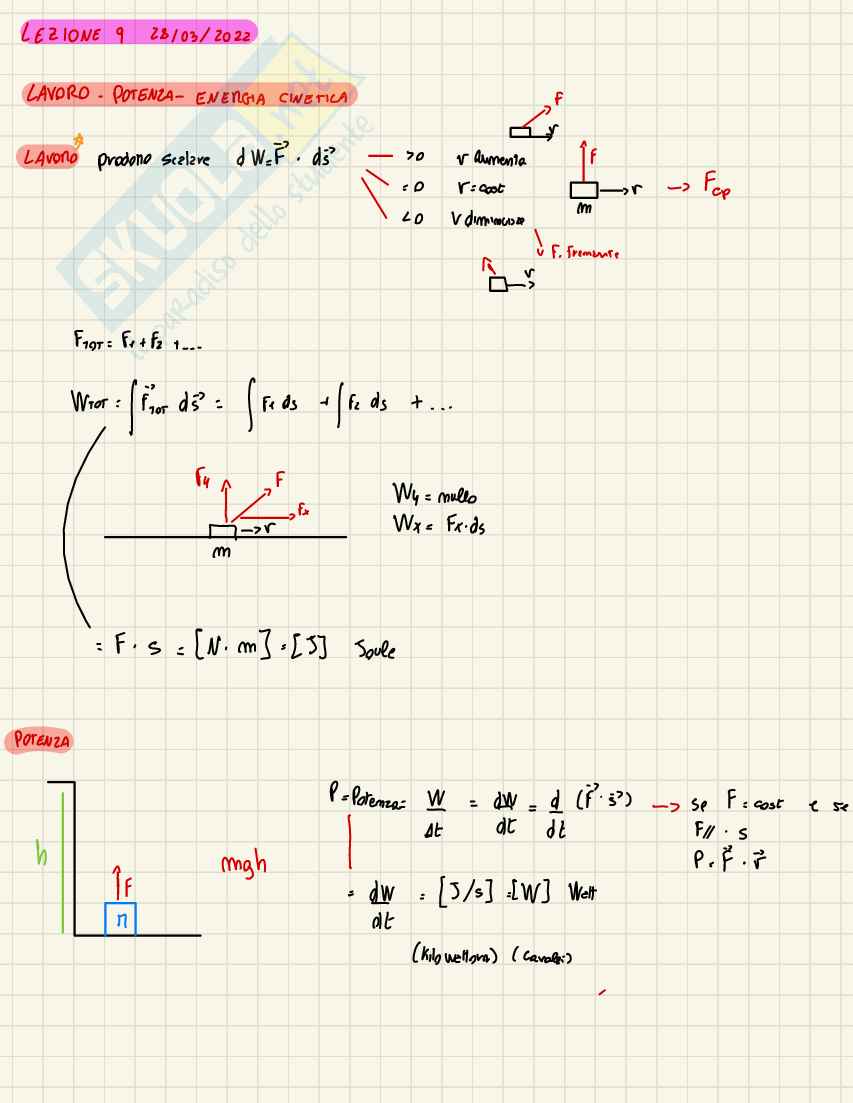 LEZIONE 9 28/03/2022
LAVORO - POTENZA - ENERGIA CINETICA
LAVORO prodono scalare dW = F⃗ · ds⃗ >0 v aumenta
=0 v = cost
<0 v diminuisce
F v
F v m → Fcp
F. frenante
v
FTOT = F1 + F2 + ...
WTOT = ∫ F⃗TOT ds⃗ = ∫ F1 ds + ∫ F2 ds + ...
Fy F Fx v m
Wy = nullo
Wx = Fx · ds
= F · s = [N · m] = [J] Joule
POTENZA
P = Potenza = W/Δt = dW/dt = d/dt (F⃗ · s⃗) → se F = cost e se
F// · s
P = F⃗ · v⃗
h F mgh
= dW/dt = [J/s] = [W] Watt
(kilowattora) (cavalli)
SKUOLA.net
il paradiso dello studente